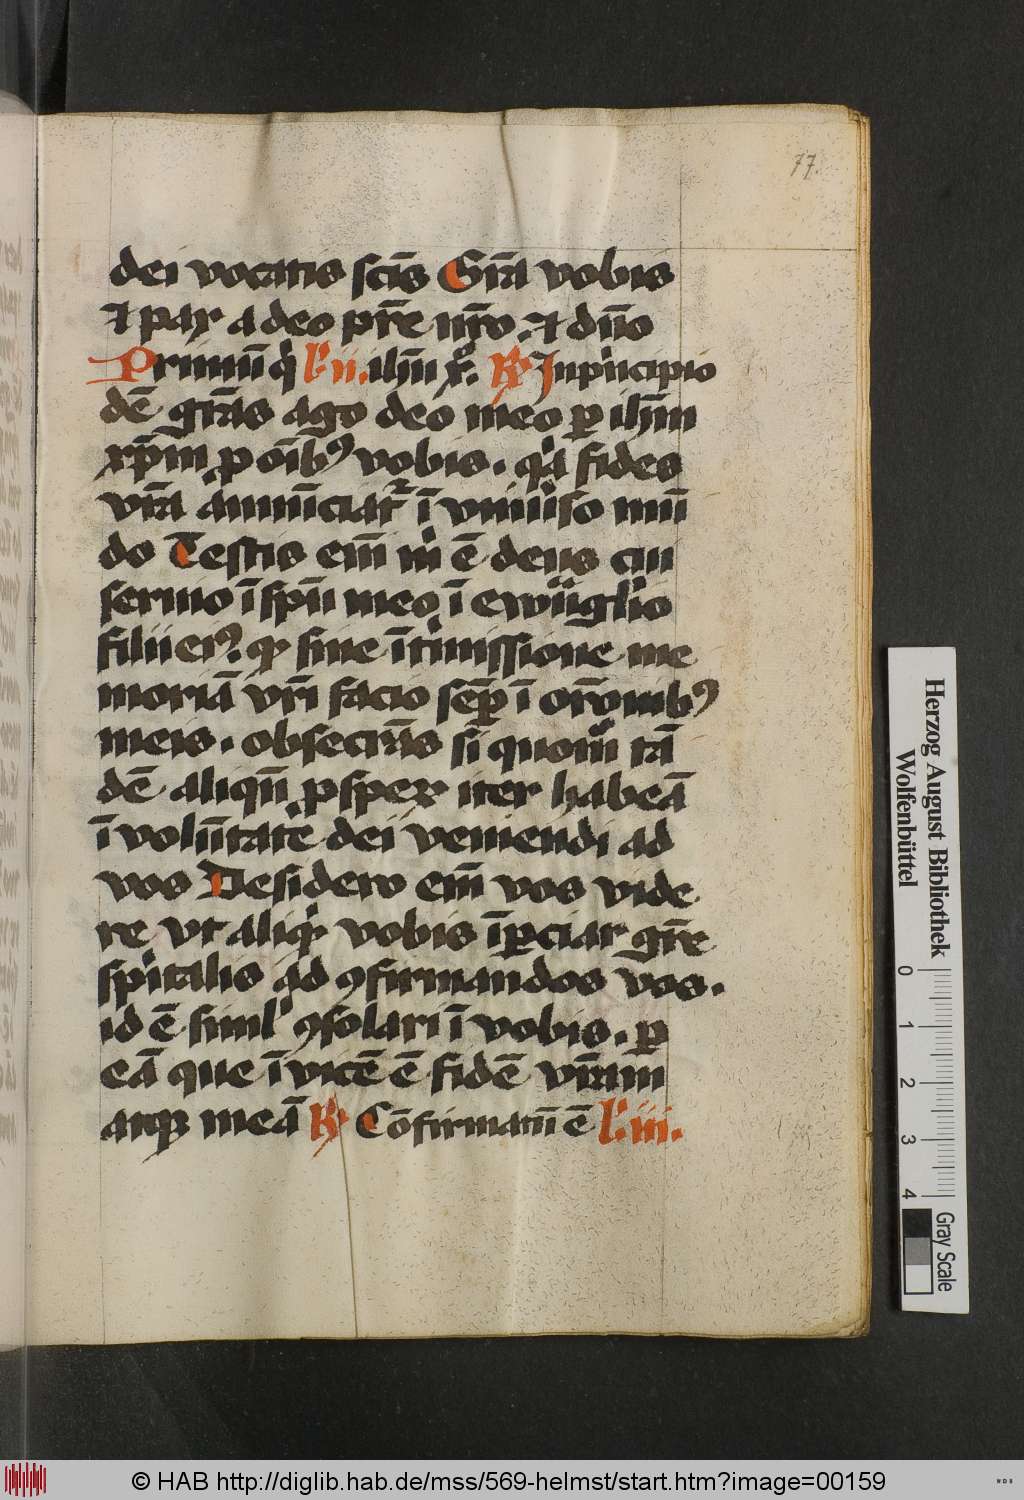 77.
dei vocatis sc̄is Gr̄a vobis
⁊ pax a deo pr̄e nr̄o ⁊ dn̄o
Primū qͥ l'. ii. ihū x̄. ℞ In pͥncipio
dē gr̄as ago deo meo ꝑ ihm̄
xp̄m ꝓ oīb⁹ vobis. qͥa fides
vr̄a annūciat᷑ ī vniu͛so mū
do Testis em̄ mͥ ē deus cui
seruio ī spū meo ī ewāgͥlio
filii ei⁹. qꝫ sine īt͛missione me
moriā vr̄i facio sēꝑ ī or̄onib⁹
meis. obsecr̄as si quom̊ tā
dē aliqn̄ ꝓspex iter habeā
ī volūtate dei veniendi ad
vos Desidero em̄ vos vide
re vt aliqͥ vobis īꝑciar gr̄e
spͥitalis ad ꝯfirmandos vos.
id ē siml' ꝯsolari ī vobis. ꝑ
eā que ī vicē ē fidē vr̄am
atqꝫ meā ℞ Cōfirmatū ē l'. iii.
Herzog August Bibliothek
Wolfenbüttel
0 1 2 3 4
Gray Scale
© HAB http://diglib.hab.de/mss/569-helmst/start.htm?image=00159